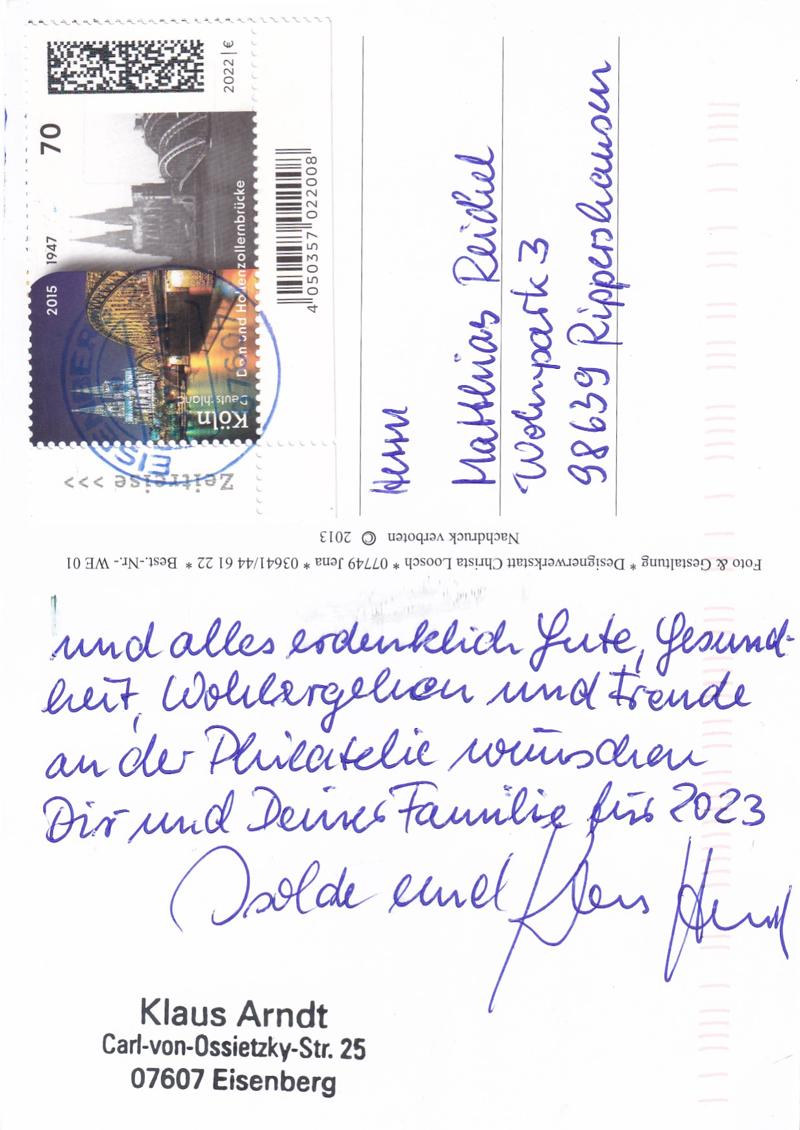 2022 | €
70
1947
2015
Dom und Hohenzollernbrücke
Köln
Deutschland
4 050357 022008
Zeitreise >>>
07607
Herrn
Matthias Reichel
Wohnpark 3
98639 Rippershausen
Nachdruck verboten © 2013
Foto & Gestaltung * Designerwerkstatt Christa Loosch * 07749 Jena * 03641/44 61 22 * Best.-Nr.- WE 01
und alles erdenklich Gute, Gesund-
heit, Wohlergehen und Freude
an der Philatelie wünschen
Dir und Deiner Familie für 2023
Isolde und Klaus Arndt
Klaus Arndt
Carl-von-Ossietzky-Str. 25
07607 Eisenberg